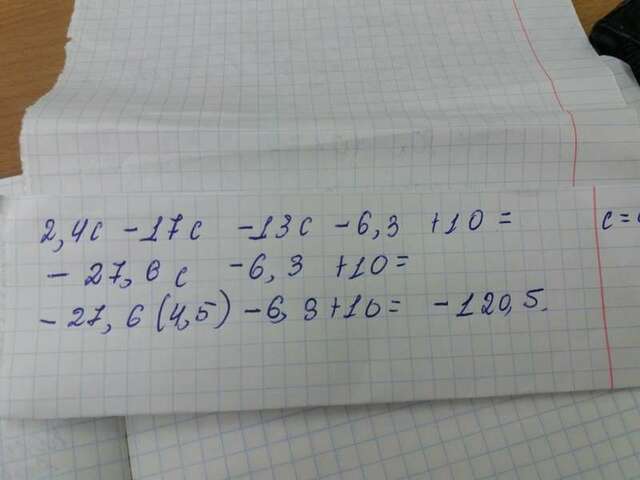 2,4c -17c -13c -6,3 +10= c=
-27,6c -6,3 +10=
-27,6(4,5)-6,3+10= -120,5.